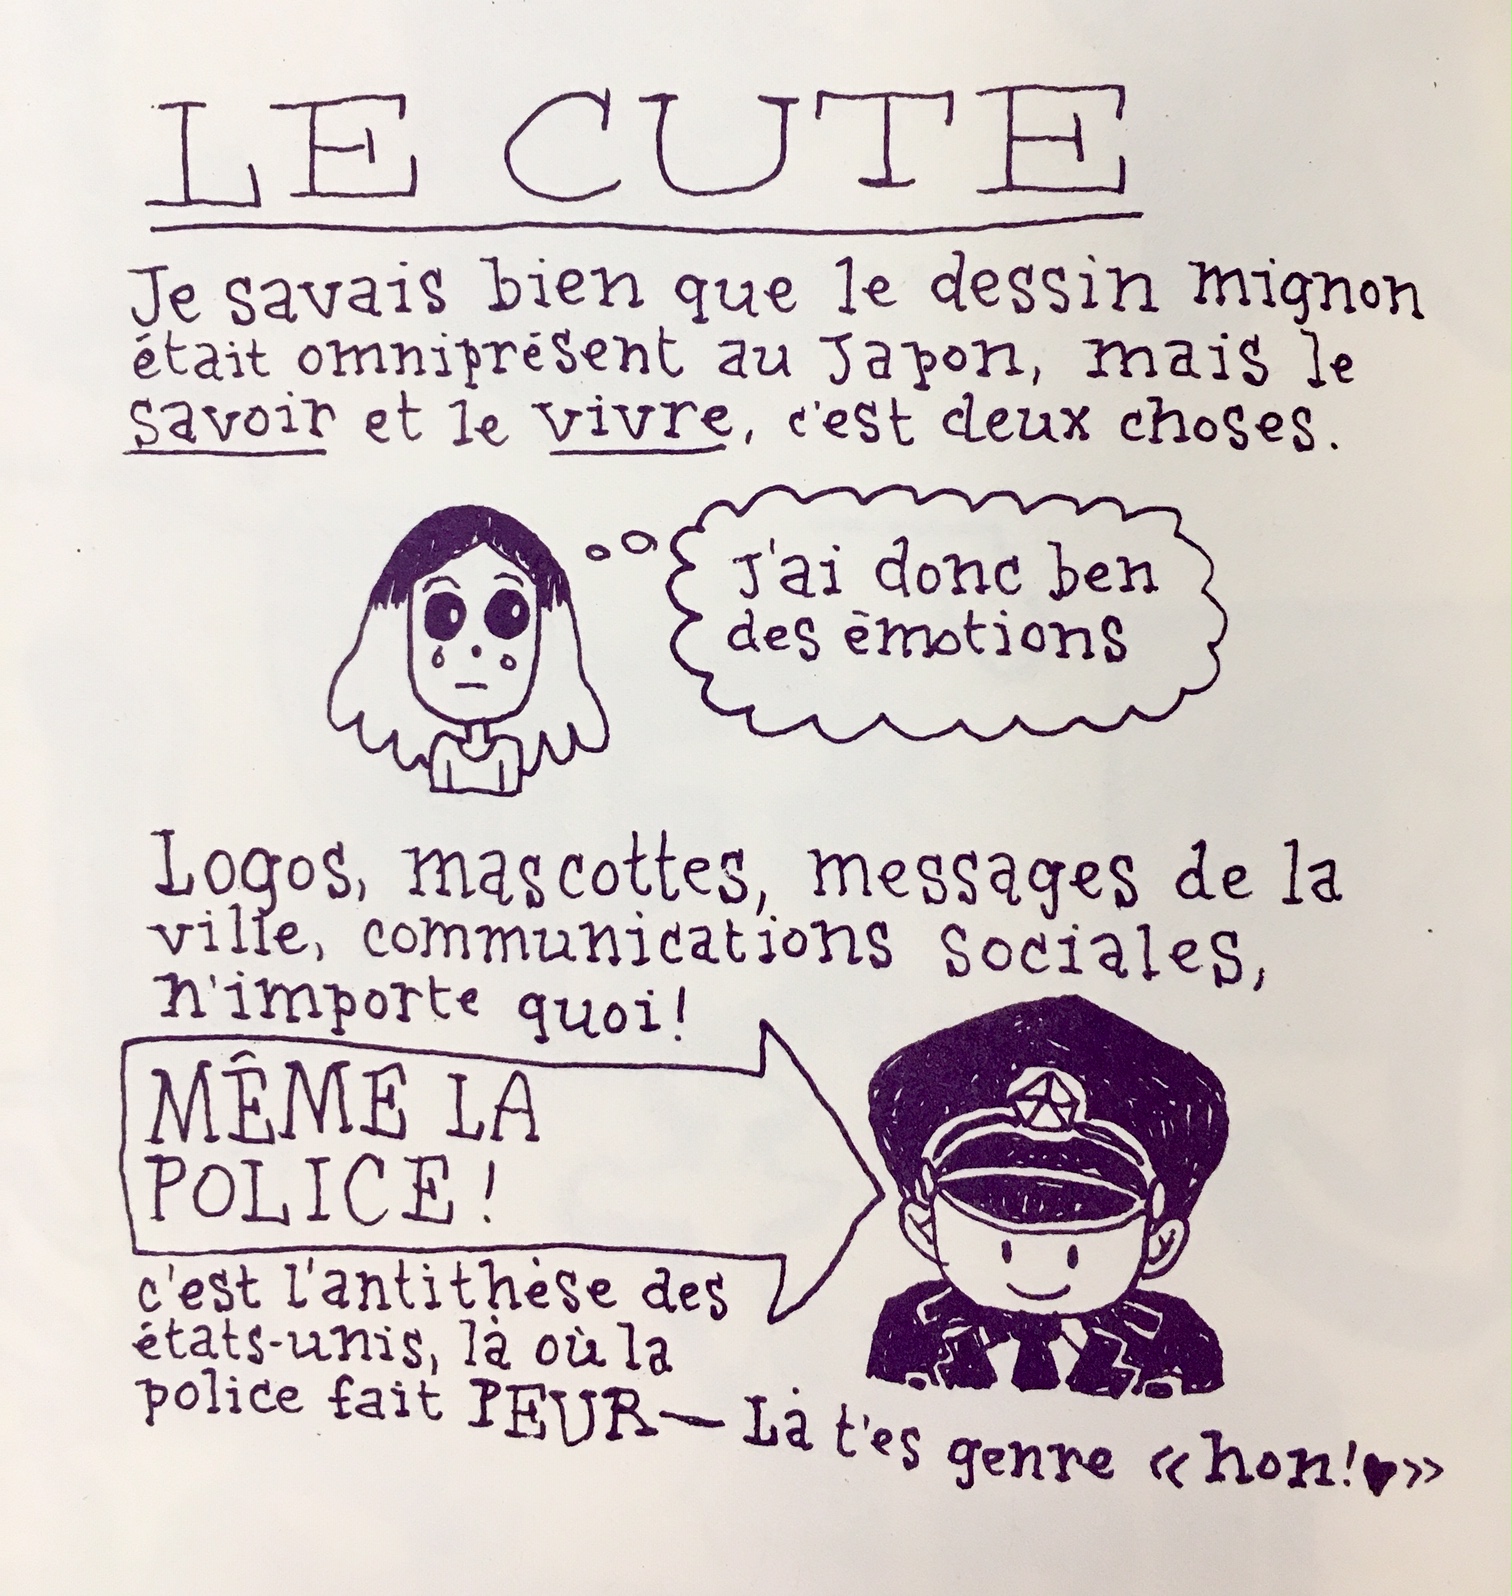 LE CUTE
Je savais bien que le dessin mignon
était omniprésent au Japon, mais le
savoir et le vivre, c'est deux choses.
J'ai donc ben
des émotions
Logos, mascottes, messages de la
ville, communications sociales,
n'importe quoi!
MÊME LA
POLICE!
c'est l'antithèse des
états-unis, là où la
police fait PEUR— Là t'es genre «hon!♥»